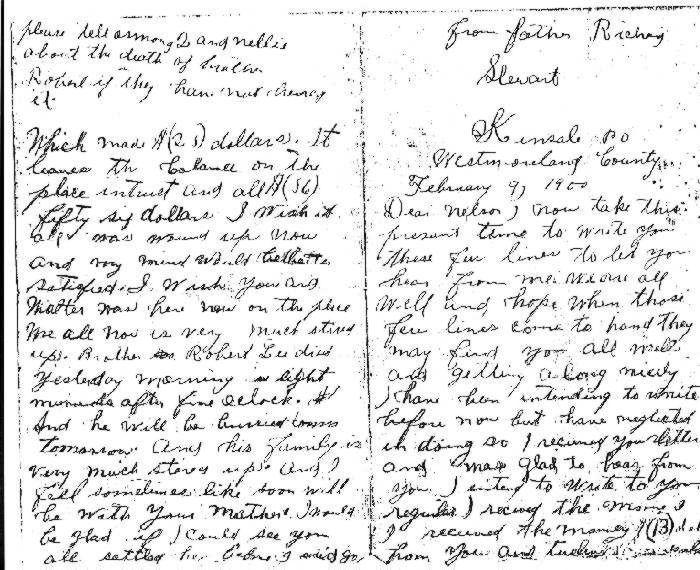 From father Richey
Stewart
Kinsale PO
Westmoreland County
February 9, 1900
Dear Nelson I now take this
present time to write you
these few lines to let you
hear from me. We are all
Well and hope when those
few lines come to hand they
may find you all well
and getting along nicely
I have been intending to write
before now but have neglected
in doing so I received your letter
and was glad to hear from
you I intend to write to you
regular I received the
I received the money $(13)
from you and
please tell and nellie
about the death of brother
Robert if they have not heard
it.
Which made $(25) dollars. It
leaves the balance on the
place intrust and all $(56)
fifty six dollars I wish it
all was wound up now
and my mind would
satisfied. I Wish you and
Matter was here now on the place
We all now is very much stired
up. Brother Robert Lee died
yesterday morning eight
minutes after five oclock.
And he will be burried
tomorrow and his family is
very much stired up. and I
feel sometimes like soon will
be with your mother. I would
be glad if I could see you
all settled before I